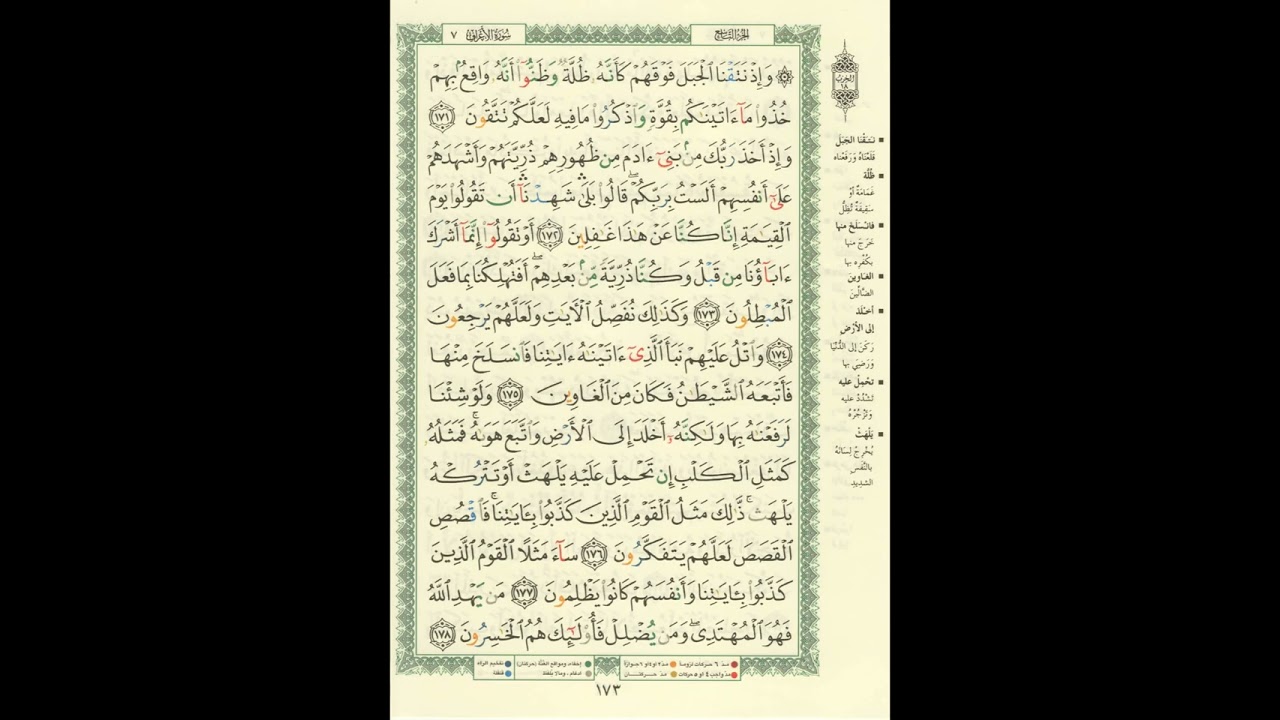 سُورَةُ الأَعْرَافِ ٧
الجُزْءُ التَّاسِعُ
۞ وَإِذْ نَتَقْنَا الْجَبَلَ فَوْقَهُمْ كَأَنَّهُ ظُلَّةٌ وَظَنُّوا أَنَّهُ وَاقِعٌ بِهِمْ
خُذُوا مَا ءَاتَيْنَٰكُم بِقُوَّةٍ وَاذْكُرُوا مَا فِيهِ لَعَلَّكُمْ تَتَّقُونَ ١٧١
وَإِذْ أَخَذَ رَبُّكَ مِن بَنِي ءَادَمَ مِن ظُهُورِهِمْ ذُرِّيَّتَهُمْ وَأَشْهَدَهُمْ
عَلَىٰ أَنفُسِهِمْ أَلَسْتُ بِرَبِّكُمْ ۖ قَالُوا بَلَىٰ ۛ شَهِدْنَا ۛ أَن تَقُولُوا يَوْمَ
الْقِيَٰمَةِ إِنَّا كُنَّا عَنْ هَٰذَا غَٰفِلِينَ ١٧٢ أَوْ تَقُولُوا إِنَّمَا أَشْرَكَ
ءَابَاؤُنَا مِن قَبْلُ وَكُنَّا ذُرِّيَّةً مِّن بَعْدِهِمْ ۖ أَفَتُهْلِكُنَا بِمَا فَعَلَ
الْمُبْطِلُونَ ١٧٣ وَكَذَٰلِكَ نُفَصِّلُ الْءَايَٰتِ وَلَعَلَّهُمْ يَرْجِعُونَ
١٧٤ وَاتْلُ عَلَيْهِمْ نَبَأَ الَّذِي ءَاتَيْنَٰهُ ءَايَٰتِنَا فَانسَلَخَ مِنْهَا
فَأَتْبَعَهُ الشَّيْطَٰنُ فَكَانَ مِنَ الْغَاوِينَ ١٧٥ وَلَوْ شِئْنَا
لَرَفَعْنَٰهُ بِهَا وَلَٰكِنَّهُ أَخْلَدَ إِلَى الْأَرْضِ وَاتَّبَعَ هَوَىٰهُ ۚ فَمَثَلُهُ
كَمَثَلِ الْكَلْبِ إِن تَحْمِلْ عَلَيْهِ يَلْهَثْ أَوْ تَتْرُكْهُ
يَلْهَث ۚ ذَّٰلِكَ مَثَلُ الْقَوْمِ الَّذِينَ كَذَّبُوا بِـَٔايَٰتِنَا ۚ فَاقْصُصِ
الْقَصَصَ لَعَلَّهُمْ يَتَفَكَّرُونَ ١٧٦ سَاءَ مَثَلًا الْقَوْمُ الَّذِينَ
كَذَّبُوا بِـَٔايَٰتِنَا وَأَنفُسَهُمْ كَانُوا يَظْلِمُونَ ١٧٧ مَن يَهْدِ اللَّهُ
فَهُوَ الْمُهْتَدِي ۖ وَمَن يُضْلِلْ فَأُولَٰئِكَ هُمُ الْخَٰسِرُونَ ١٧٨
الحِزْب
١٨
نَتَقْنَا الجَبَلَ
قَلَعْنَاهُ وَرَفَعْناه
ظُلَّة
غَمَامَةٌ أوْ
سَقِيفَةٌ تُظِلُّ
فَانْسَلَخَ منها
خَرَجَ منها
بِكُفْرِه بها
الغَاوِينَ
الضَّالِّينَ
أخْلَدَ
إلى الأرْضِ
رَكَنَ إلى الدُّنْيَا
وَرَضِيَ بها
تَحْمِلْ عليه
تَشْدُدْ عليه
وَتَزْجُرْهُ
يَلْهَثْ
يُخْرِجْ لِسَانَهُ
بالنَّفَسِ
الشديدِ
مدّ ٦ حركات لزوماً
مدّ ٢ أو ٤ أو ٦ جوازاً
إخفاء، ومواقع الغنّة (حركتان)
تفخيم الراء
مدّ واجب ٤ أو ٥ حركات
مدّ حركتان
إدغام، وما لا يلفظ
قلقلة
١٧٣